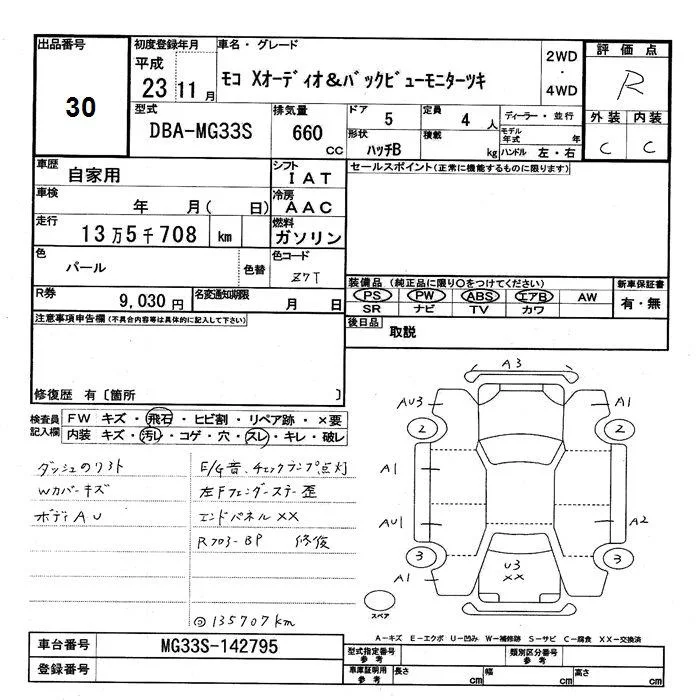 出品番号
30
初度登録年月
平成
23 11 月
車名・グレード
モコ Xオーディオ&バックビューモニターツキ
2WD
・
4WD
評価点
R
外装 内装
C C
型式
DBA-MG33S
排気量
660
CC
ドア
5
定員
4 人
ディーラー・並行
形状
ハッチB
積載
kg
モデル年式 年
ハンドル 左・右
車歴
自家用
シフト
IAT
セールスポイント(正常に機能するものに限ります)
車検
年 月( 日)
冷房
AAC
走行
13万5千708 km
燃料
ガソリン
色
パール
色替
色コード
Z7T
R券
9,030 円
名変通知期限
月 日
装備品 (純正品に限り○をつけてください)
PS PW ABS エアB AW
SR ナビ TV カワ
新車保証書
有・無
注意事項申告欄(不具合内容等は具体的に記入して下さい)
後日品
取説
修復歴 有〔箇所 〕
検査員記入欄
FW キズ・飛石・ヒビ割・リペア跡・×要
内装 キズ・汚レ・コゲ・穴・スレ・キレ・破レ
ダッシュのリフト
Wカバーキズ
ボディAU
E/G音、チェックランプ点灯
左Fフェンダーステー歪
エンドパネルXX
Rフロア-BP 修復
◎135707km
A3
AU3
A1
2
2
A1
AU1
A2
3
3
A1
U3
XX
スペア
A-キズ E-エクボ U-凹み W-補修跡 S-サビ C-腐食 XX-交換済
車台番号
MG33S-142795
登録番号
型式指定番号
参考
類別区分番号
参考
車庫証明用
参考
長さ cm
幅 cm
高さ cm